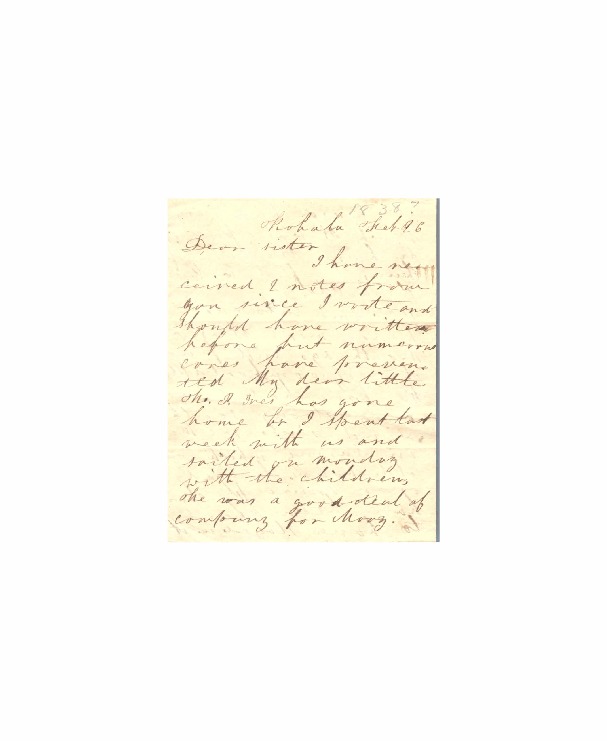 1838?
Kohala Feb 26
Dear sister
I have re-
ceived 2 notes from
you since I wrote and
should have written
before but numerous
cares have preven-
ted My dear little
has gone
home & I spent last
week with us and
sailed on monday
with the children,
she was a good deal of
company for Mary.